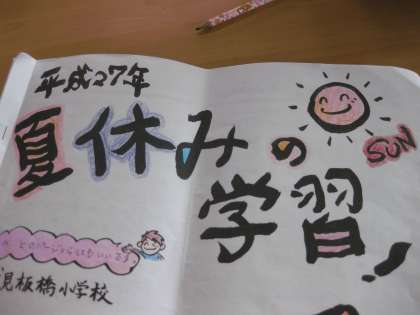 平成27年
夏休みの
SUN
学習!
見板橋小学校